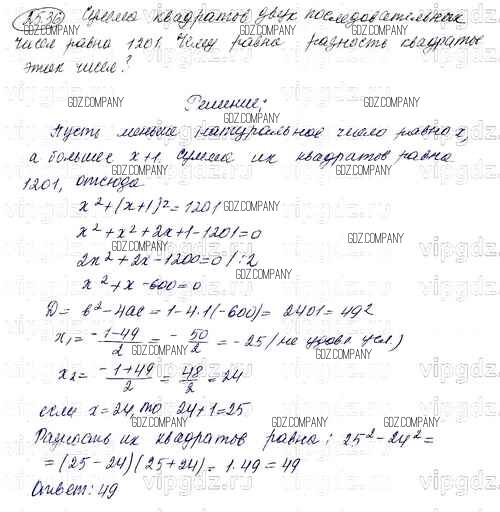 25.36 Сумма квадратов двух последовательных
чисел равна 1201. Чему равна разность квадратов
этих чисел?
Решение:
Пусть меньшее натуральное число равно x,
а большее x+1. Сумма их квадратов равна
1201, отсюда
x²+(x+1)²=1201
x²+x²+2x+1-1201=0
2x²+2x-1200=0 /:2
x²+x-600=0
D= b²-4ac=1-4·1(-600)=2401=49²
x₁= (-1-49)/2 = -50/2 = -25 (не удовл усл)
x₂= (-1+49)/2 = 48/2 = 24
если x=24, то 24+1=25
Разность их квадратов равна: 25²-24²=
=(25-24)(25+24)=1·49=49
Ответ: 49